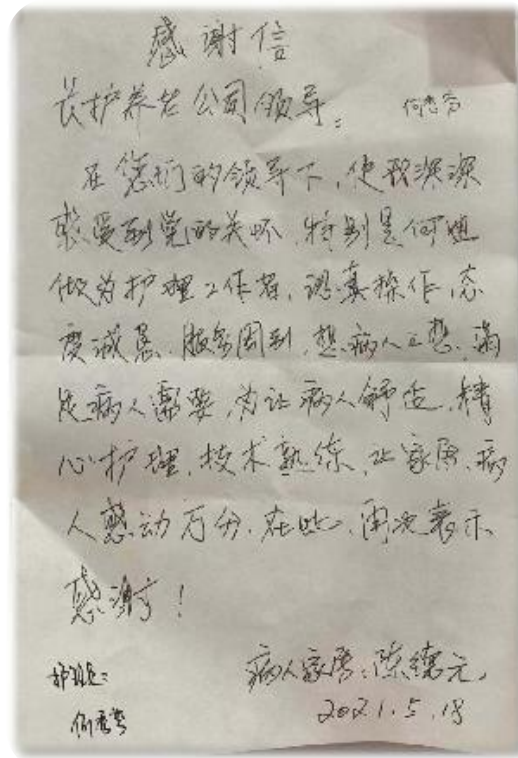 感谢信
长护养老公司领导：
在您们的领导下，使我深深
感受到党的关怀，特别是何姐
做为护理工作者，认真操作，态
度诚恳、服务周到，想病人之想，满
足病人需要，为让病人舒适，精
心护理，技术熟练，让家属、病
人感动万分，在此，再次表示
感谢！
病人家属：陈德元
2021.5.18
护理员：